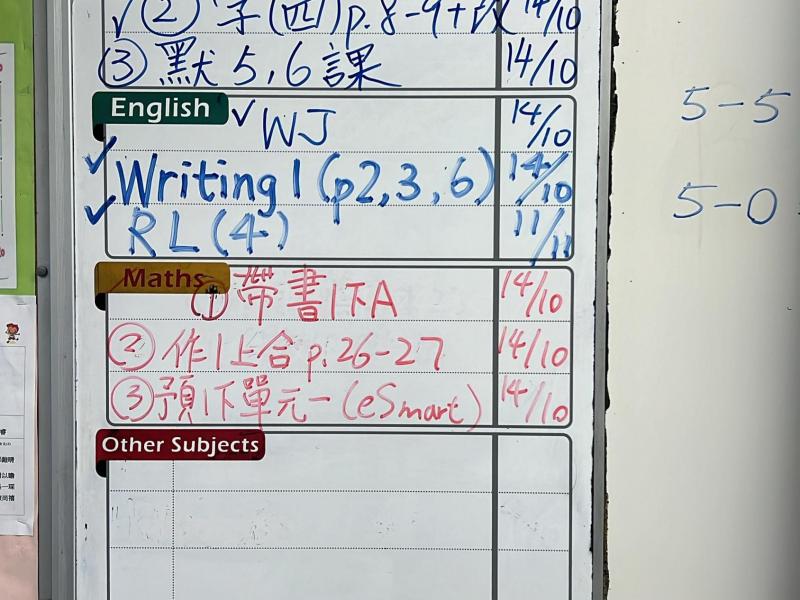 ✓ ② 字(四)p.8-9+改 14/10
③ 默 5,6 課 14/10
English
✓ WJ 14/10
✓ Writing 1 (p2,3,6) 14/10
✓ RL(4) 11/11
Maths
① 帶書1下A 14/10
② 作1上合 p.26-27 14/10
③ 預1下單元一 (eSmart) 14/10
Other Subjects
5-5
5-0